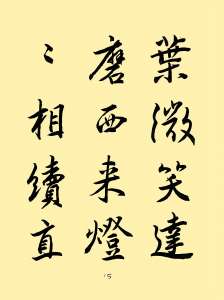 葉微笑達
磨西来燈
〻相續直